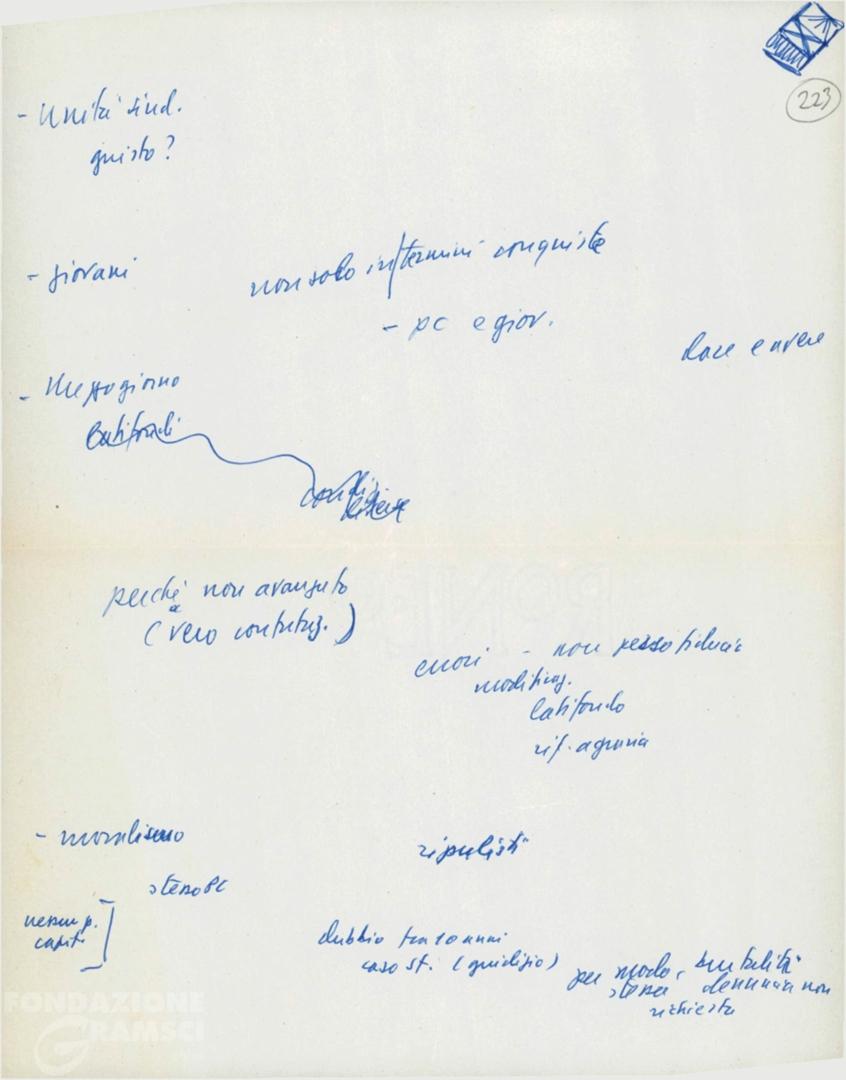 223
- Unità sind.
giusto?
- giovani
non solo in termini conquiste
- pc e giov.
dare e avere
- Mezzogiorno
latifondi
perché non avanzato
(vero contataz.)
- non perso fiducia
modificaz.
latifondo
rif. agraria
- moralismo
ripulisti
stesso PC
nessun p.
capiti
dubbio tra 10 anni
caso st. (giudizio)
per modo, brutalità
stessa denuncia non
richiesta
FONDAZIONE
GRAMSCI